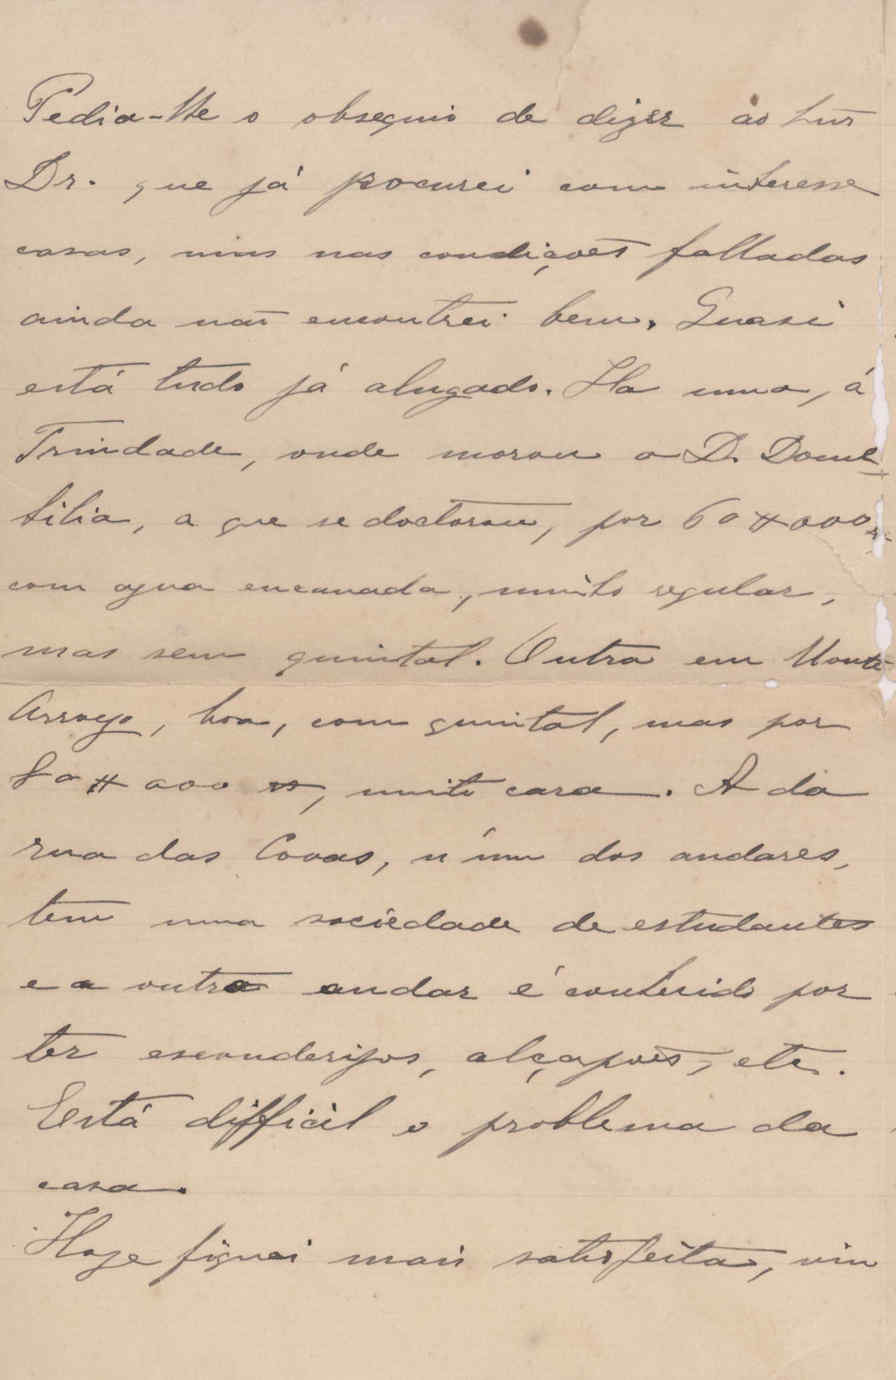 Pedia-lhe o obsequio de dizer ao Snr
Dr. que já procurei com interesse
casas, mas nas condições falladas
ainda não encontrei bem. Quasi
está tudo já alugado. Ha uma, á
Trindade, onde morou a D. Dome
tilia, a que se doctorou, por 60#000
com agua encanada, muito regular,
mas sem quintal. Outra em Monte
Arroyo, boa, com quintal, mas por
80#000 rs, muito cara. A da
rua das Covas, n'um dos andares,
tem uma sociedade de estudantes
e o outro andar é conhecido por
ter esconderijos, alçapões, etc.
Está difficil o problema da
casa.
Hoje fiquei mais satisfeita, vim